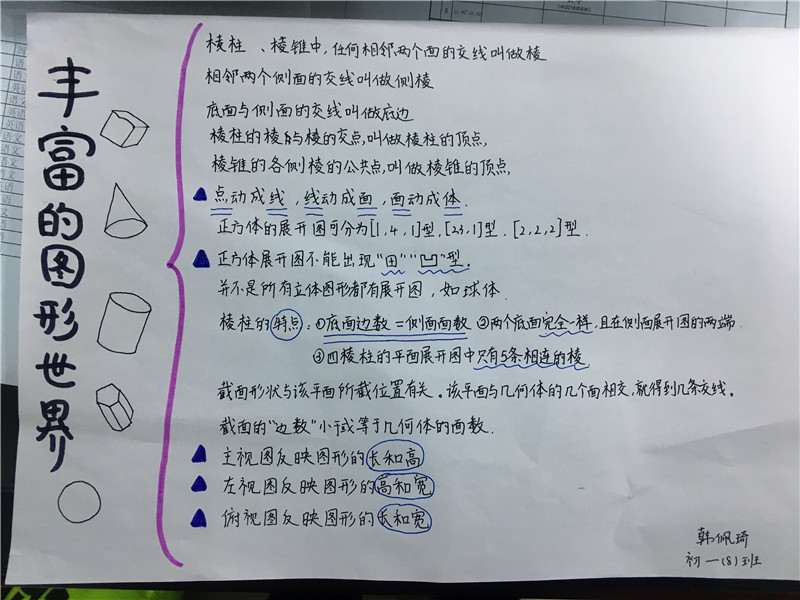 丰富的图形世界
棱柱、棱锥中,任何相邻两个面的交线叫做棱
相邻两个侧面的交线叫做侧棱
底面与侧面的交线叫做底边
棱柱的棱与棱的交点,叫做棱柱的顶点,
棱锥的各侧棱的公共点,叫做棱锥的顶点,
点动成线,线动成面,面动成体.
正方体的展开图可分为[1,4,1]型,[2,3,1]型.[2,2,2]型.
正方体展开图不能出现“田”“凹”型.
并不是所有立体图形都有展开图,如球体.
棱柱的特点:①底面边数=侧面面数 ②两个底面完全一样,且在侧面展开图的两端.
③四棱柱的平面展开图中只有5条相连的棱
截面形状与该平面所截位置有关。该平面与几何体的几个面相交,就得到几条交线。
截面的“边数”小于或等于几何体的面数.
主视图反映图形的长和高
左视图反映图形的高和宽
俯视图反映图形的长和宽
韩佩琦
初一(8)班